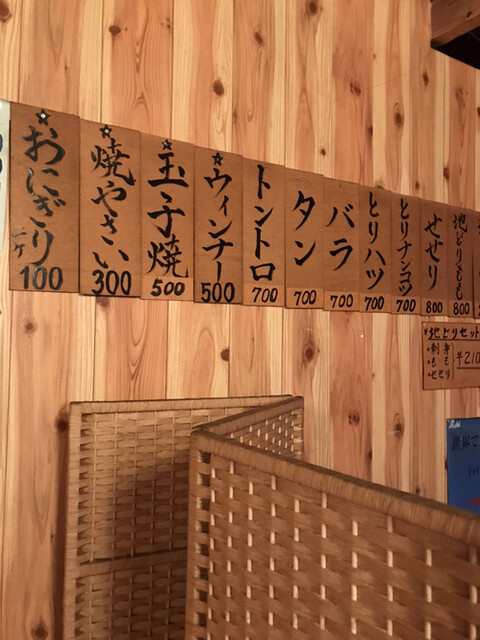 ☆おにぎり
一ケ
100
☆焼やさい
300
☆玉子焼
500
☆ウィンナー
500
トントロ
700
タン
700
バラ
700
とりハツ
700
とりナンコツ
700
せせり
800
地どりもも
800
地どりセット
・刺身
・もも
・せせり
¥210
世界で